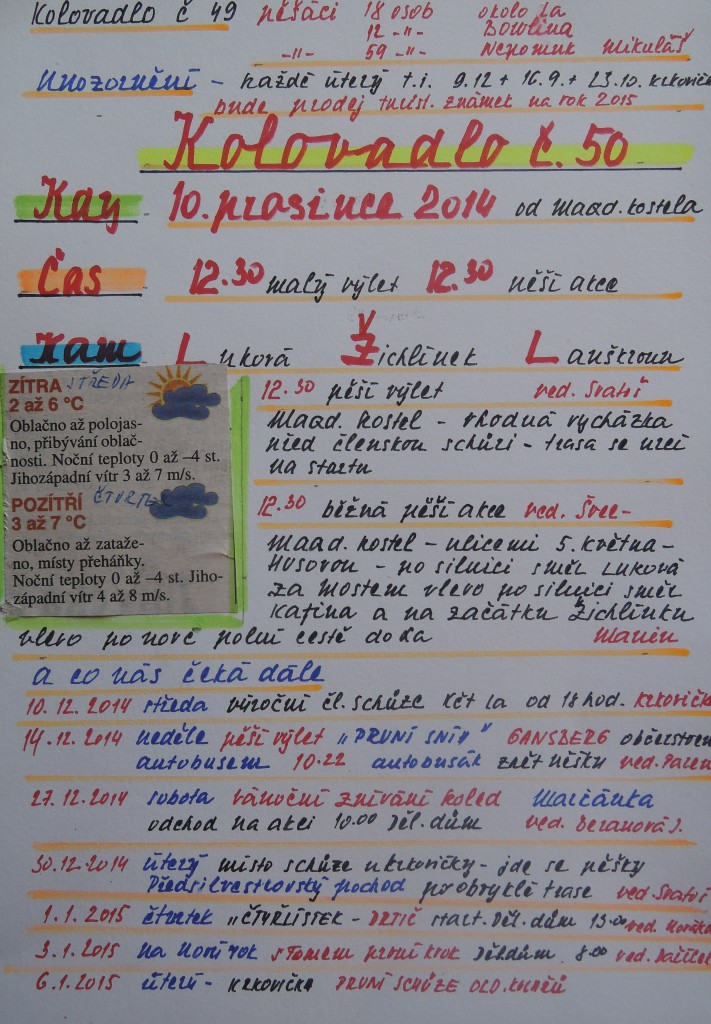 Kolovadlo č 49 pěšáci 18 osob okolo La
12 -"- Bowlina
-"- 59 -"- Nepomuk Mikuláš
Upozornění - každé úterý t.i. 9.12 + 16.9. + 23.10. Krkovičk
bude prodej turist. známek na rok 2015
Kolovadlo č. 50
Kdy 10. prosince 2014 od Maad. kostela
Čas 12.30 malý výlet 12.30 pěší akce
Kam Luková Žichlínek Lanškroun
ZÍTRA STŘEDA
2 až 6 °C
Oblačno až polojas-
no, přibývání oblač-
nosti. Noční teploty 0 až –4 st.
Jihozápadní vítr 3 až 7 m/s.
POZÍTŘÍ ČTVRTEK
3 až 7 °C
Oblačno až zataže-
no, místy přeháňky.
Noční teploty 0 až –4 st. Jiho-
západní vítr 4 až 8 m/s.
12.30 pěší výlet ved. Svatoš
Maad. kostel - vhodná vycházka
před členskou schůzí - trasa se určí
na startu
12.30 běžná pěší akce ved. Švec-
Maad. kostel - ulicemi 5. května -
Husovou - po silnici směl Luková
za mostem vlevo po silnici směl
Kafina a na začátku Žichlínku
vlevo po nové polní cestě do La
a co nás čeká dále
10.12.2014 středa výroční čl. schůze KČT La od 18 hod. Krkovičk
14.12.2014 neděle pěší výlet „PRVNÍ SNÍH" GANSBERG občerstven
autobusem 10.22 autobusák zpět pěšky
27.12.2014 sobota vánoční zpívání koled Mariánka
odchod na akci 10.00 Děl. dům ved. Beranová J.
30.12.2014 úterý místo schůze u Krkovičky - jde se pěšky
Předsilvestrovský pochod po obvyklé trase ved. Svatoš
1.1.2015 čtvrtek „ČTYŘLÍSTEK - start. Děl. dům 13.00
3.1.2015 na Nový rok s Tomem první krok Děl. dům 8.00
6.1.2015 úterý - Krkovička PRVNÍ SCHŮZE